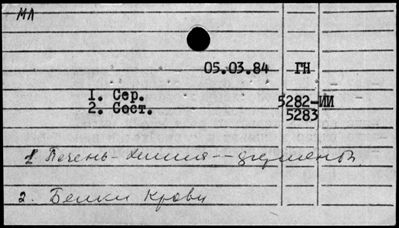 МЛ
05.03.84 ГН
1. Сер. 5282-ИИ
2. Сост. 5283
1 Печень - химия --
2. Белки крови